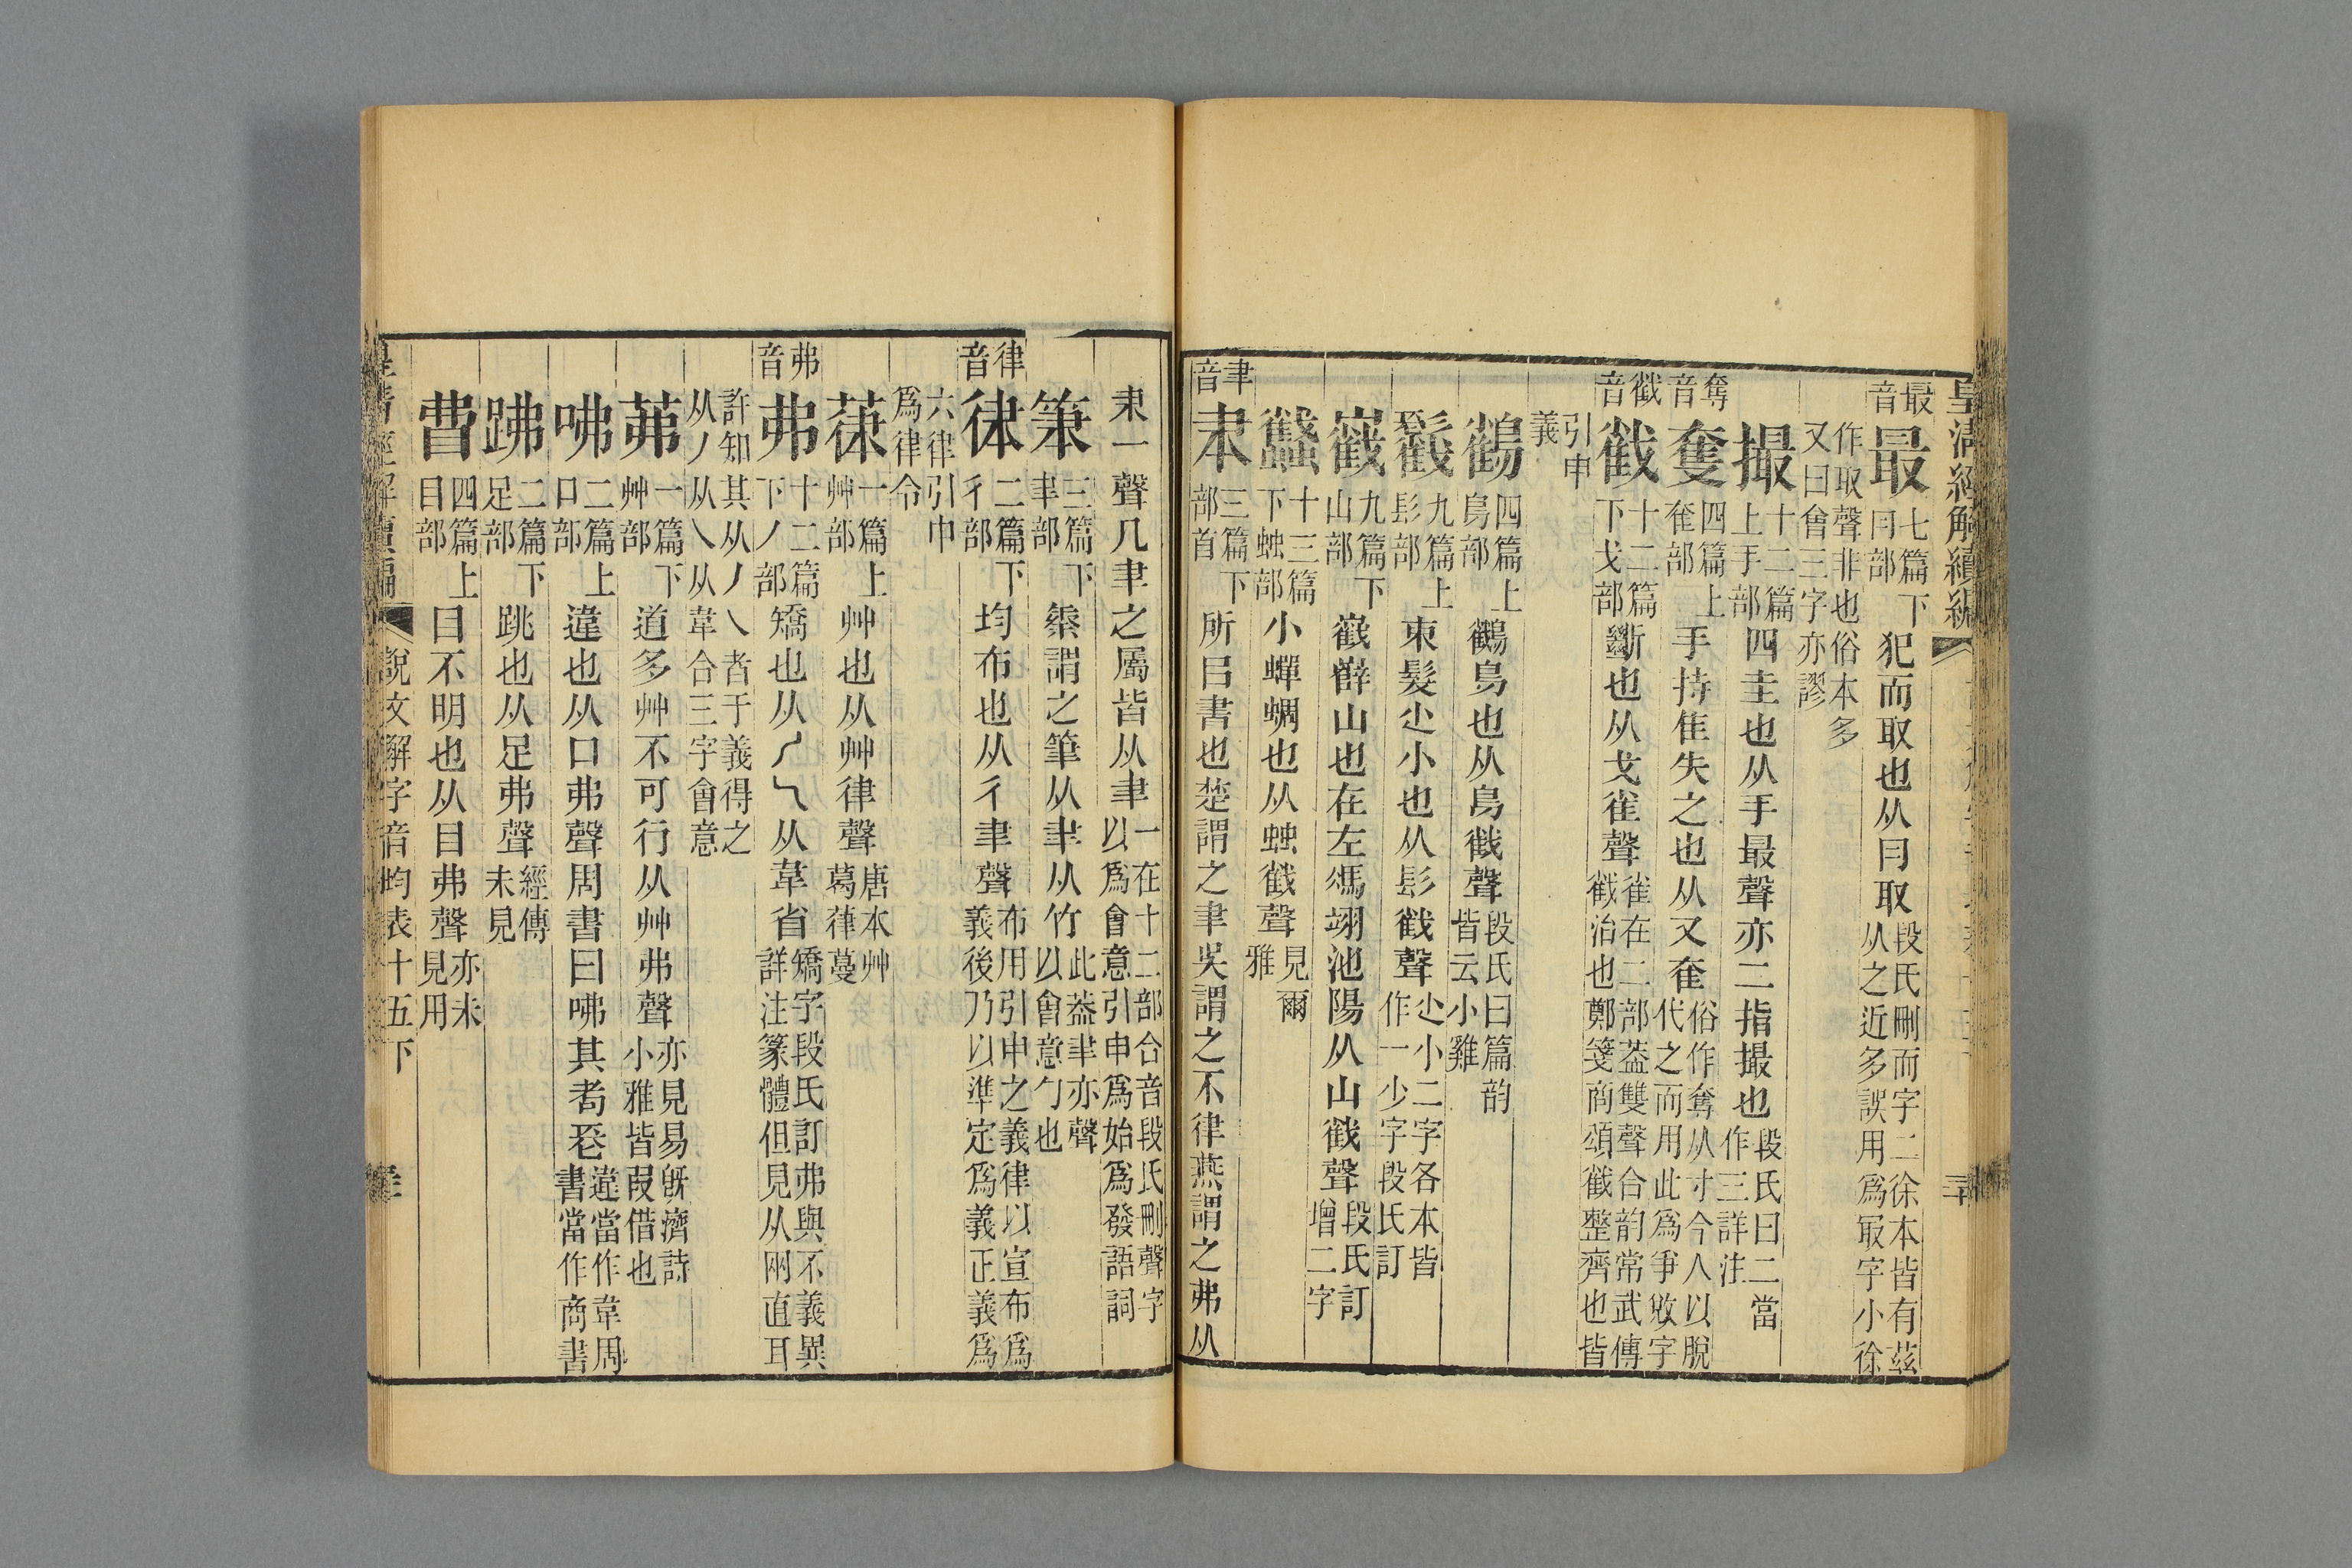 皇清經解續編
最音 最 七篇下冃部 犯而取也从冃取 段氏刪而字二徐本皆有茲从之近多誤用爲冣字小徐
作取聲非也俗本多又曰會三字亦謬
撮 十二篇上手部 四圭也从手最聲亦二指撮也 段氏曰二當作三詳注
奪音 奪 四篇上奞部 手持隹失之也从又奞 俗作奪从寸今人以脫代之而用此爲爭敚字
戳音 戳 十二篇下戈部 斷也从戈雀聲 雀在二部葢雙聲合韵常武傳戳治也鄭箋商頌戳整齊也皆
引申義
鷷 四篇上鳥部 鳥也从鳥聲 段氏曰篇韵皆云小雞
九篇上髟部 束髮尐小也从髟聲 尐小二字各本皆作一少字段氏訂
九篇下山部 山也在左馮翊池陽从山聲 段氏訂增二字
十三篇下䖵部 小蟬蜩也从䖵聲 見爾雅
聿音 聿 三篇下部首 所㠯書也楚謂之聿吳謂之不律燕謂之弗从
𦘒一聲凡聿之屬皆从聿 一在十二部合音段氏刪聲字以爲會意引申爲始爲發語詞
筆 三篇下聿部 秦謂之筆从聿从竹 此葢聿亦聲以會意勹也
律音 律 二篇下彳部 均布也从彳聿聲 布用引申之義律以宣布爲義後乃以準定爲義正義爲
六律引申爲律令
葎 一篇上艸部 艸也从艸律聲 唐本艸葛葎蔓
弗音 弗 十二篇下丿部 矯也从丿乀从韋省 矯字段氏訂弗與不義異詳注篆體但見从兩直耳
許知其从丿乀者于義得之从丿从乀从韋合三字會意
茀 一篇下艸部 道多艸不可行从艸弗聲 亦見易旣濟詩小雅皆叚借也
咈 二篇上口部 違也从口弗聲周書曰咈其耇𦒱 違當作韋周書當作商書
跳 二篇下足部 跳也从足弗聲 經傳未見
四篇上目部 目不明也从目弗聲 亦未見用
說文解字音均表十五下